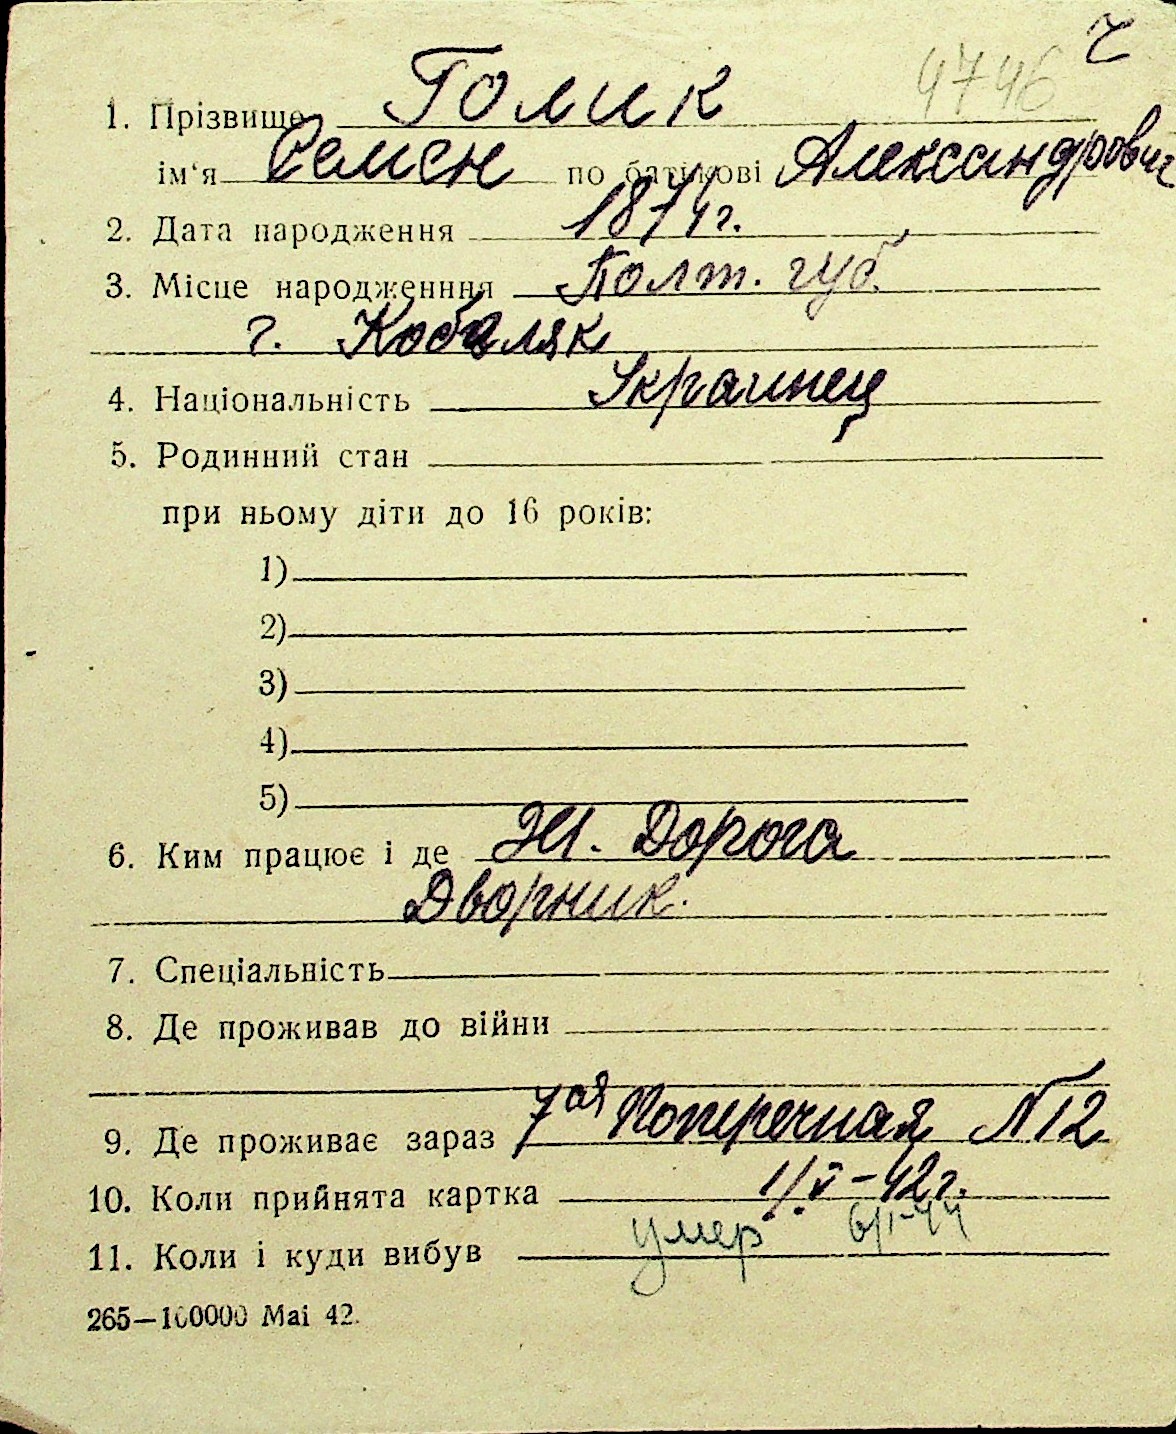 ч
4746
1. Прізвище Голик
ім'я Семен по батькові Александрович
2. Дата народження 1874 г.
3. Місце народженння Полт. губ.
г. Кобеляк
4. Національність Украинец
5. Родинний стан
при ньому діти до 16 років:
1)
2)
3)
4)
5)
6. Ким працює і де Жел. Дорога
Дворник.
7. Спеціальність
8. Де проживав до війни
9. Де проживає зараз 7ая Поперечная N 12
10. Коли прийнята картка 1/V-42 г.
11. Коли і куди вибув умер 6/I-44
265—100000 Mai 42.